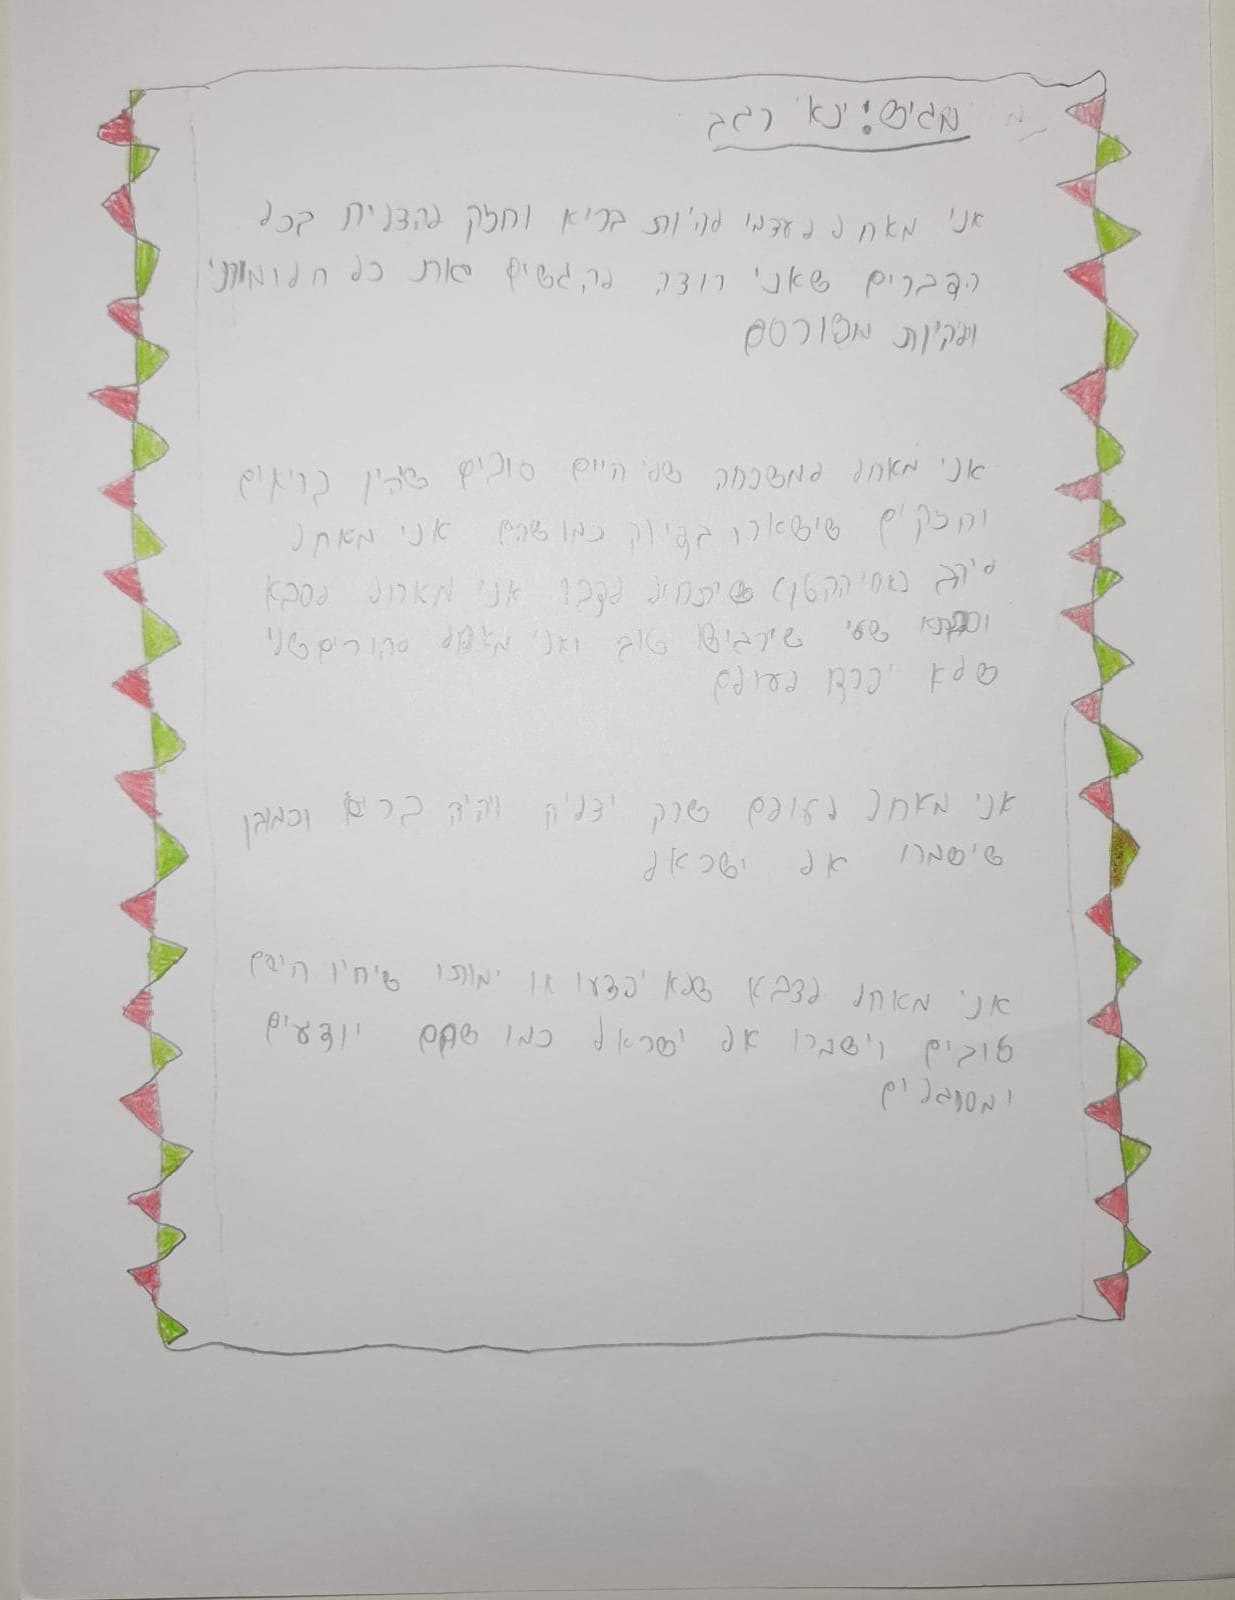 מגיש: ינאי רגב
אני מאחל לעצמי להיות בריא וחזק להצליח בכל
הדברים שאני רוצה להגשים את כל חלומותי
ולהיות מפורסם
אני מאחל למשפחה שלי היים טובים שיהיו בריאים
וחזקים שישארו בדיוק כמו שהם אני מאחל
(אחי הקטן) שיתחיל לדבר אני מאחל לסבא
וסבתא שלי שירגישו טוב ואני מאחל להורים שלי
שלא יפרדו לעולם
אני מאחל לעולם שרק יצליח ויהיה בריא וכמובן
שישמרו אל ישראל
אני מאחל לצבא שלא יפצעו או ימותו שיחיו היים
טובים וישמרו אל ישראל כמו שהם יודעים
ומסוגלים